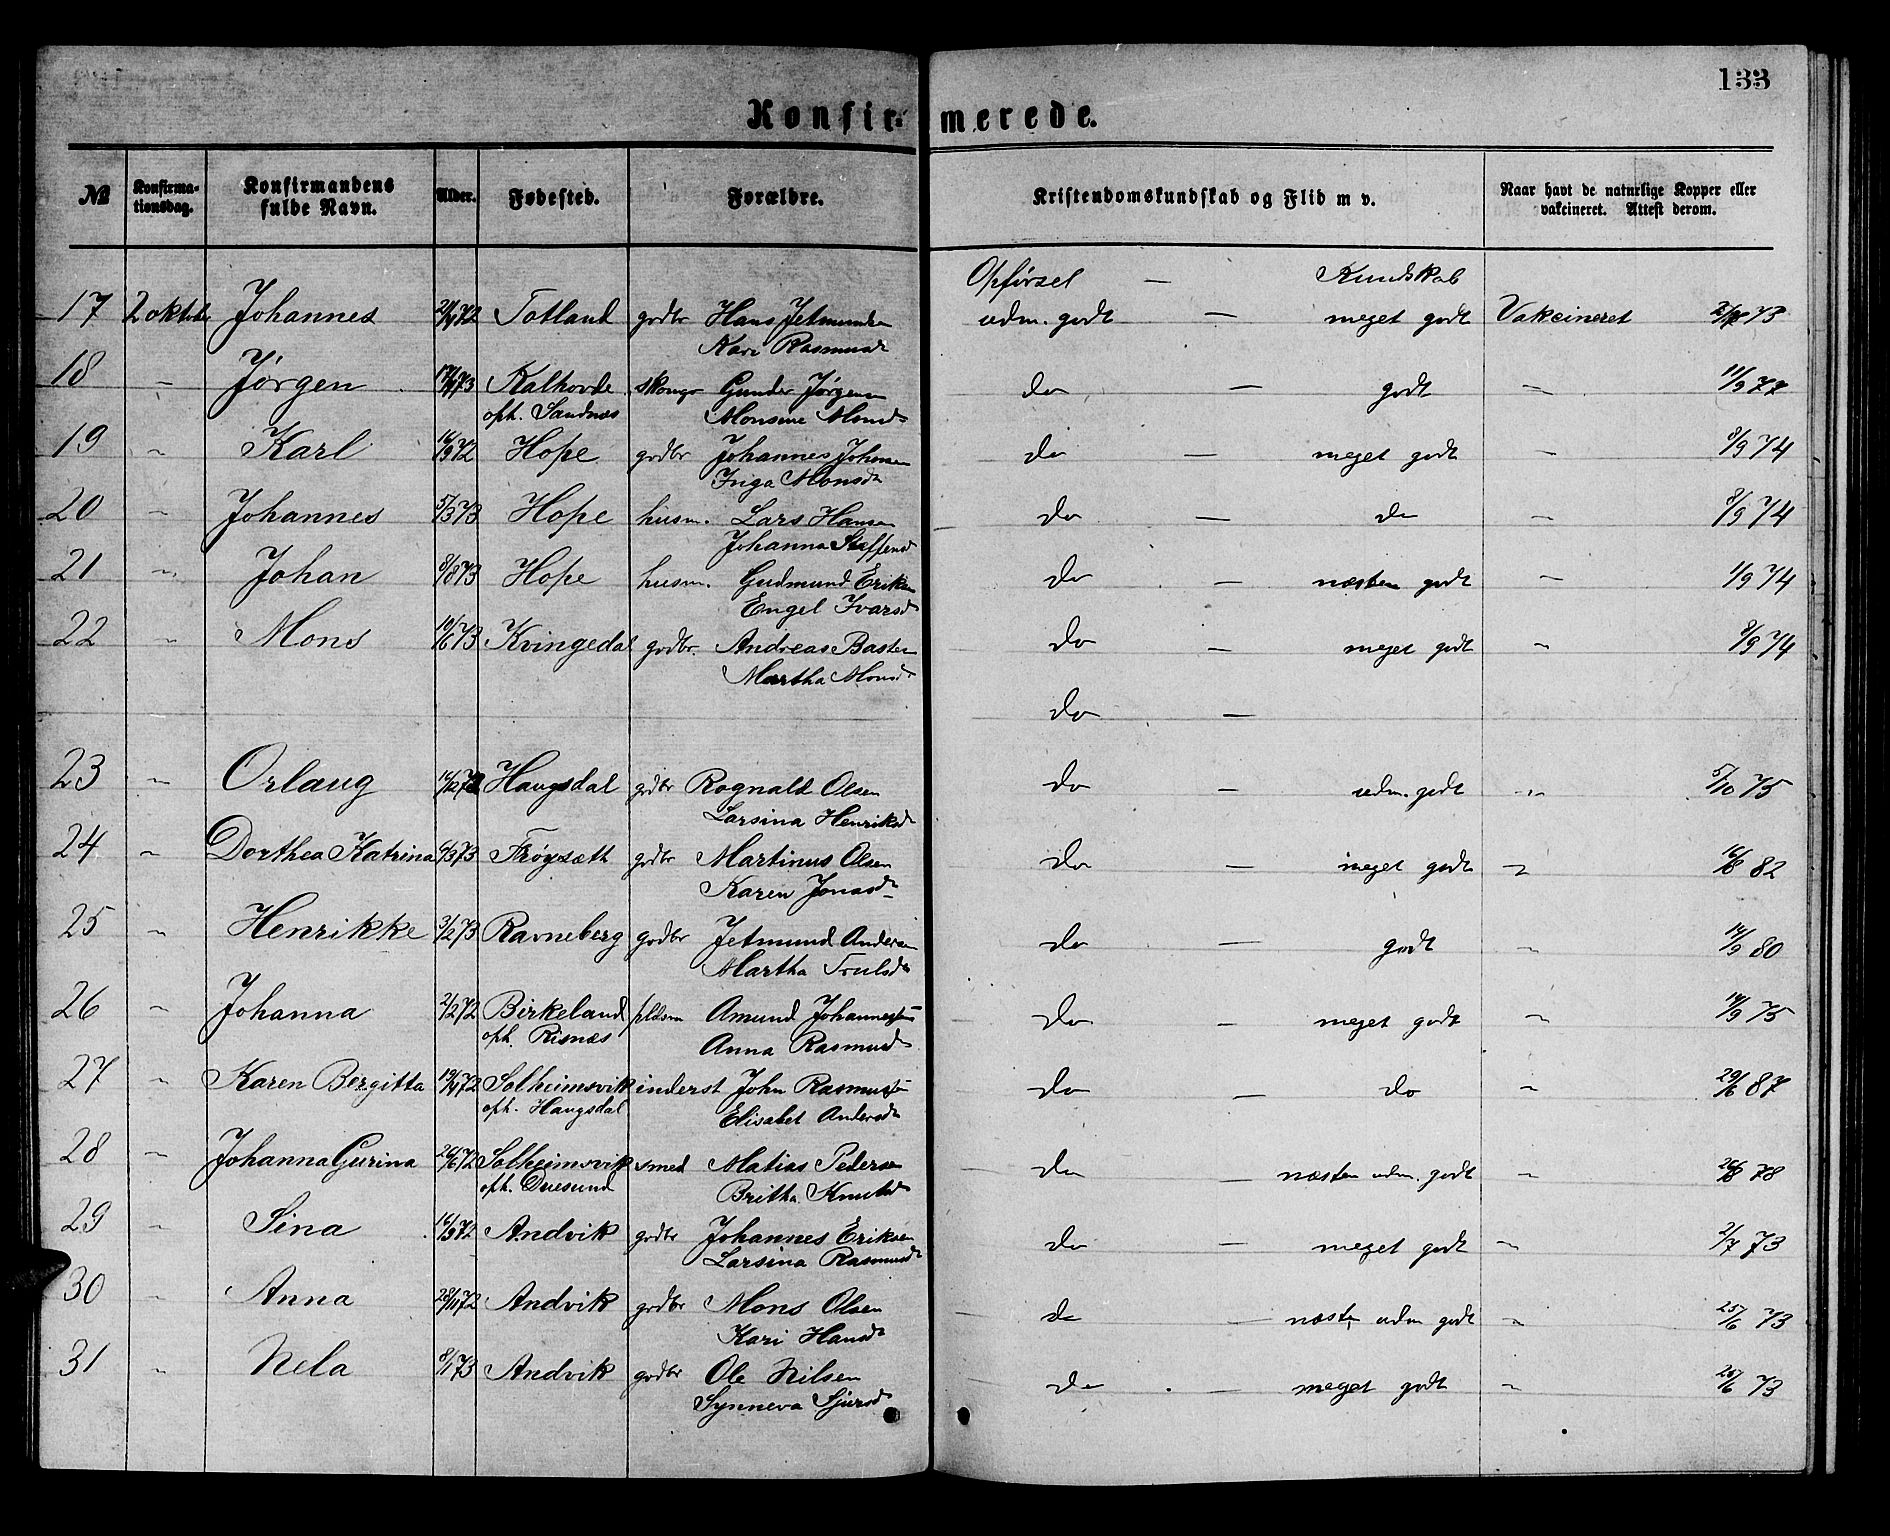 133
Konfir- merede.
№ Konfirma-tionsdag. Konfirmandens fulde Navn. Alder. Fødested. Forældre. Kristendomskundskab og Flid m v. Naar havt de naturlige Kopper eller vakcineret. Attest derom.
Opførsel — Kundskab
17 2 oktober Johannes Totland gdbr Hans Jetmundsen udm. godt — meget godt Vakcineret 73
Kari Rasmusdt
18 " Jørgen Kalhovde Gunder Jørgensen do — godt " 11/9 77
oph. Sandnæs Monsine Monsd
19 " Karl 16/9 72 Hope gdbr Johannes Johnsen do — meget godt " 8/9 74
Inga Monsdt
20 " Johannes 5/3 73 Hope husm. Lars Hansen do — do " 8/9 74
Johanna Steffensd
21 " Johan 8/8 73 Hope husm. Gudmund Eriksen do — næsten godt " 1/9 74
Engel Ivarsd
22 " Mons 10/6 73 Kvingedal gdbr. Andreas Basten do — meget godt " 8/9 74
Martha Monsd
do —
23 " Orlaug Haugsdal gdbr Rognald Olsen do — udm. godt " 5/10 75
Larsina Henriksd
24 " Dorthea Katrina 6/3 73 Frøysæth gdbr Martinus Olsen do — meget godt " 16/6 82
Karen Jonasdt
25 " Henrikke 3/2 73 Ravneberg gdbr Jetmund Andersen do — godt " 14/9 80
Martha Trulsdt
26 " Johanna 2/2 72 Birkeland pldsm Amund Johannessen do — meget godt " 14/9 75
oph. Risnæs Anna Rasmusd
27 " Karen Bergitta Solheimsvik inderst John Rasmussen do — do " 29/6 87
oph. Haugsdal Elisabet Andersdt
28 " Johanna Gurina 26/6 72 Solheimsvik smed Matias Pedersen do — næsten udm. godt " 78
oph. Duesund Britha Knutsd
29 " Sina 16/9 72 Andvik gdbr Johannes Eriksen do — meget godt " 2/7 73
Larsina Rasmusdt
30 " Anna 28/11 72 Andvik gdbr Mons Olsen do — næsten udm godt " 25/6 73
Kari Hansdt
31 " Nela 8/1 73 Andvik gdbr Ole Nilsen do — meget godt " 25/6 73
Synneva Sjursd